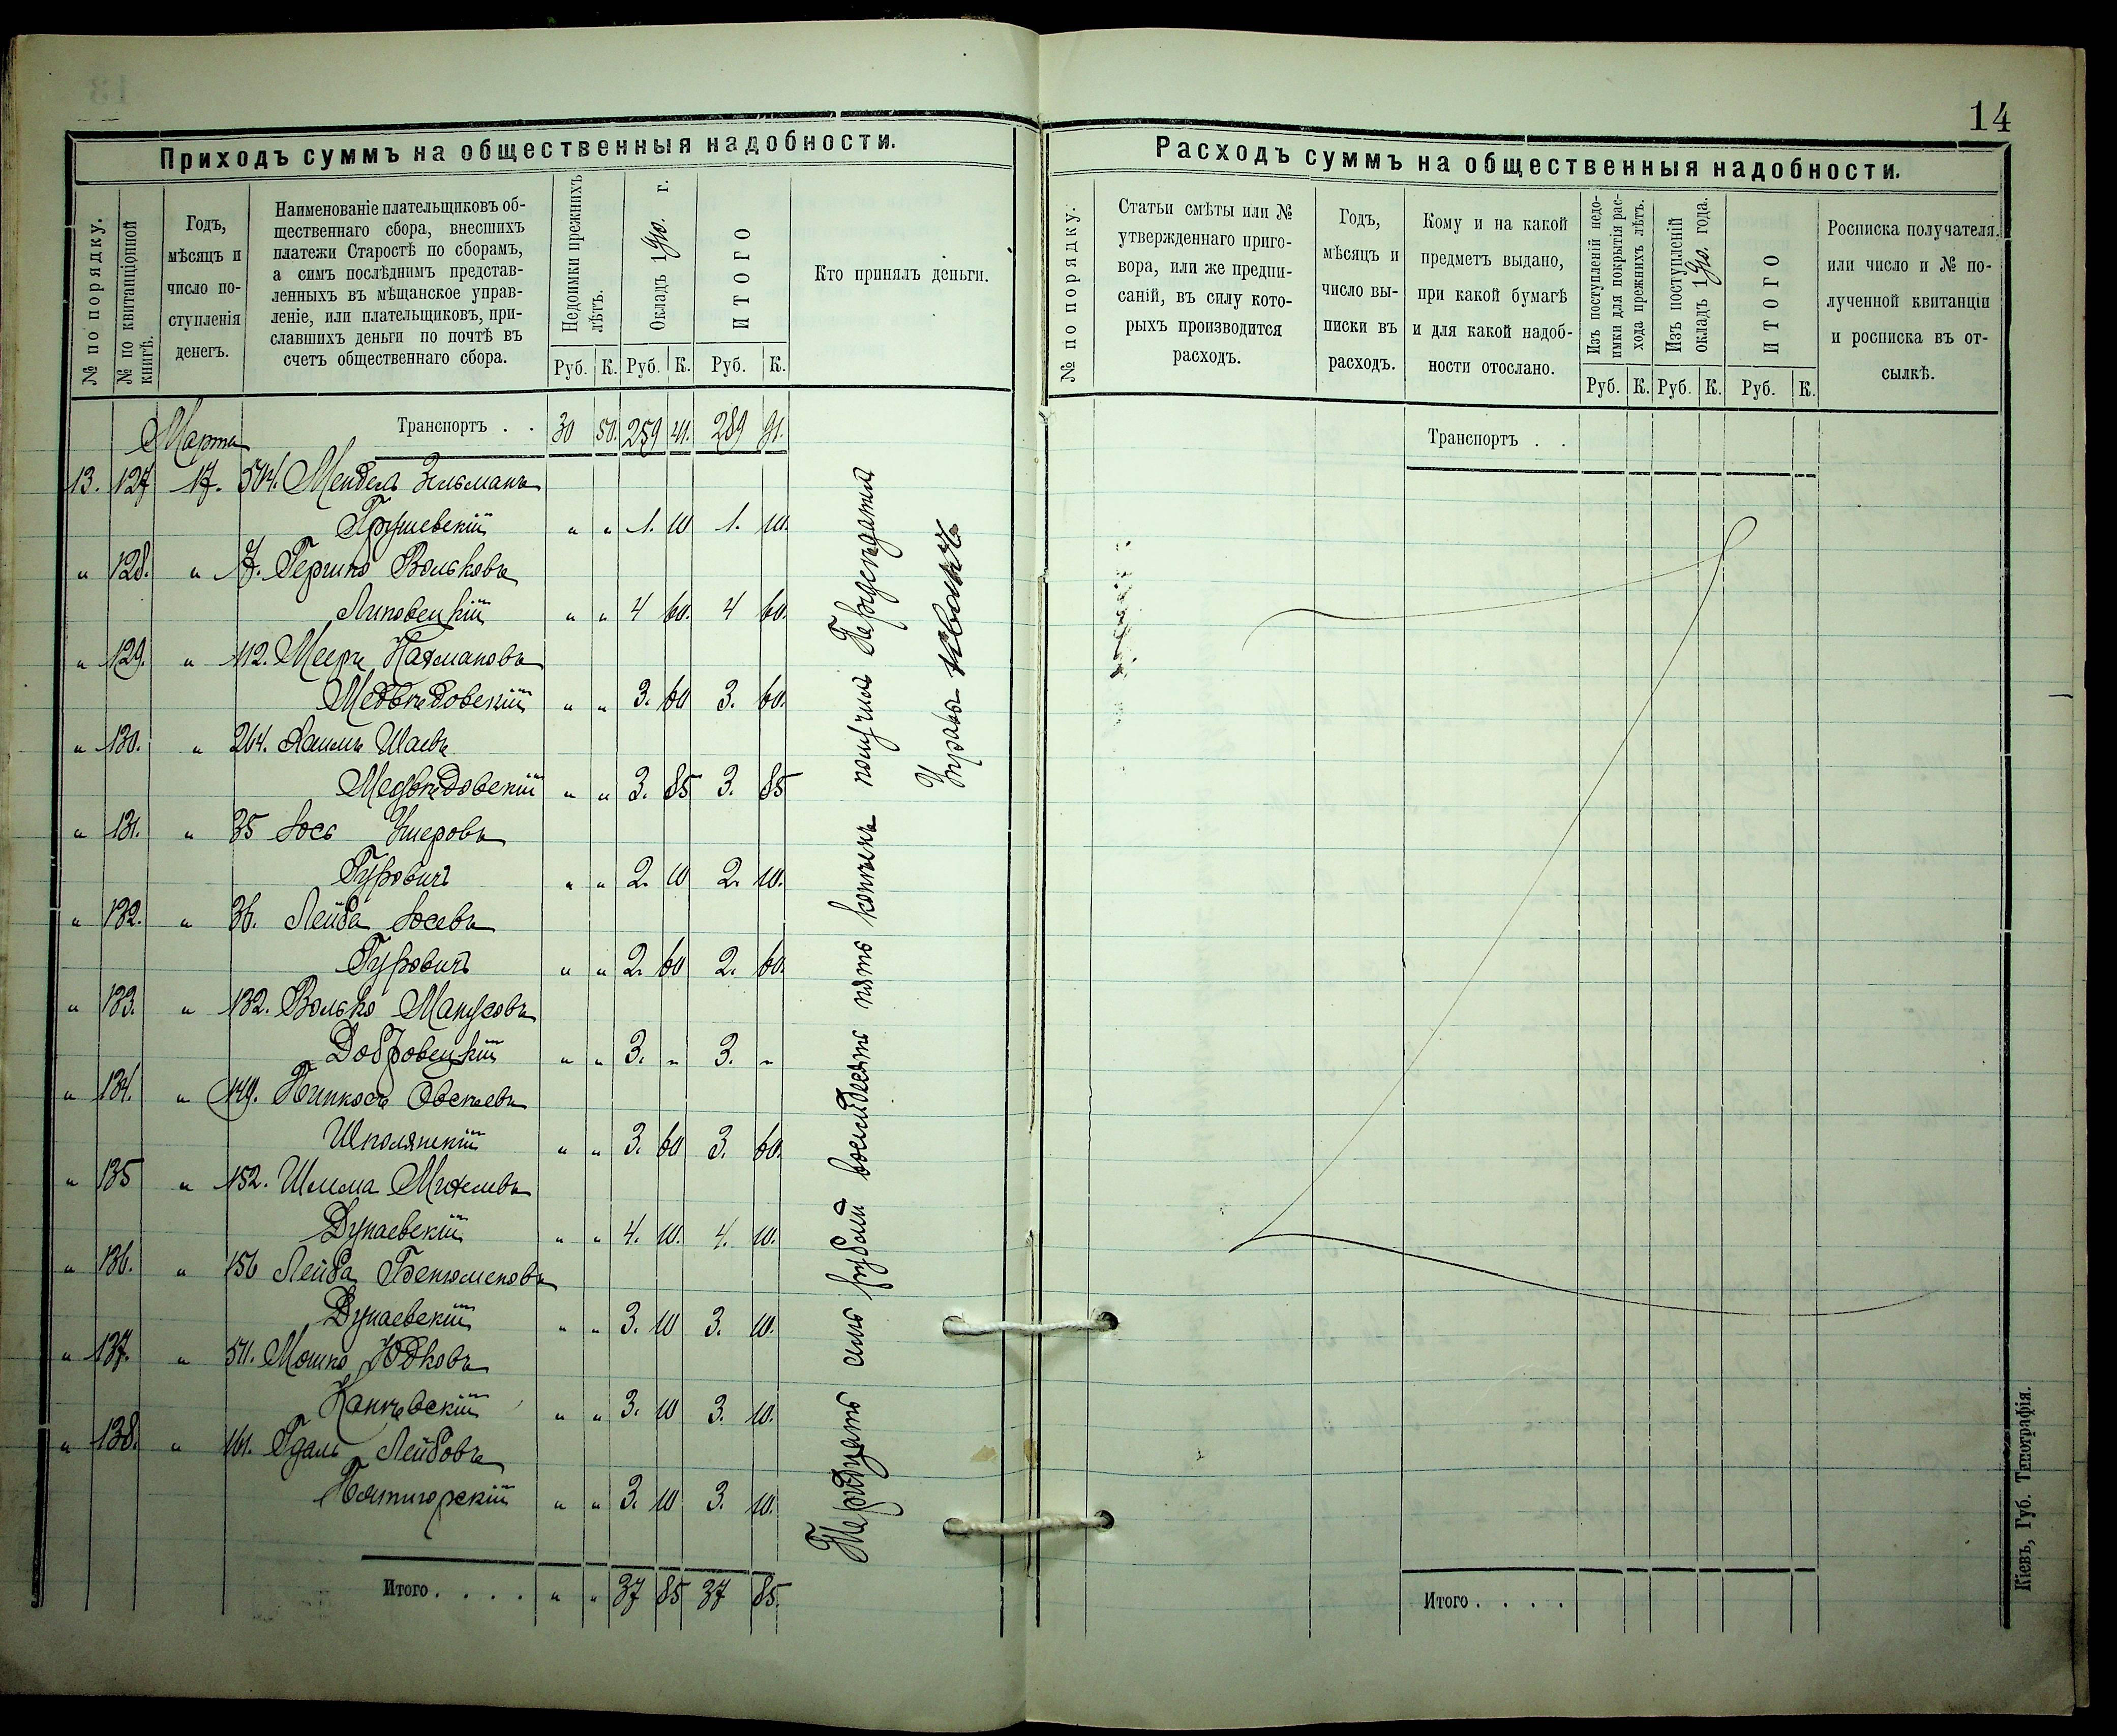 14
Приходъ суммъ на общественныя надобности.
№ по порядку.
№ по квитанціонной книгѣ.
Годъ,
мѣсяцъ и
число по-
ступленія
денегъ.
Наименованіе плательщиковъ об-
щественнаго сбора, внесшихъ
платежи Старостѣ по сборамъ,
а симъ послѣднимъ представ-
ленныхъ въ мѣщанское управ-
леніе, или плательщиковъ, при-
славшихъ деньги по почтѣ въ
счетъ общественнаго сбора.
Недоимки прежнихъ
лѣтъ.
Окладъ 1910. г.
ИТОГО
Кто принялъ деньги.
Руб. К. Руб. К. Руб. К.
Марта Транспортъ . . 30 50. 259 41. 289 91.
13. 127 17. 504. Мендель Зельмановъ
Грушевскій " " 1. 10 1. 10.
" 128. " 7. Гершко Вольковъ
Липовецкій " " 4 60. 4 60.
" 129. " 112. Мееръ Нахмановъ
Медвѣдовскій " " 3. 60 3. 60.
" 130. " 264. Хаимъ Шаевъ
Медвѣдовскій " " 3. 85 3. 85
" 131. " 35 Іось Ушеровъ
Гуровичъ " " 2. 10 2. 10.
" 132. " 36. Лейба Іосевъ
Гуровичъ " " 2. 60 2. 60.
" 133. " 132. Волько Манусовъ
Добровецкій " " 3. " 3. "
" 134. " 149. Пинкосъ Овсеевъ
Шполянскій " " 3. 60 3. 60.
" 135 " 152. Шлема Михелевъ
Дунаевскій " " 4. 10. 4. 10.
" 136. " 156 Лейба Бенюменовъ
Дунаевскій " " 3. 10 3. 10.
" 137. " 571. Мошко Юдковъ
Каневскій " " 3. 10 3. 10.
" 138. " 161. Гдаль Лейбовъ
Пятигорскій " " 3. 10 3. 10.
Итого . . . . " " 37 85 37 85.
Тридцать семь рублей восемдесятъ пять копѣекъ получилъ
Управы
Расходъ суммъ на общественныя надобности.
№ по порядку.
Статьи смѣты или №
утвержденнаго приго-
вора, или же предпи-
саній, въ силу кото-
рыхъ производится
расходъ.
Годъ,
мѣсяцъ и
число вы-
писки въ
расходъ.
Кому и на какой
предметъ выдано,
при какой бумагѣ
и для какой надоб-
ности отослано.
Изъ поступленій недо-
имки для покрытія рас-
хода прежнихъ лѣтъ.
Изъ поступленій
окладъ 1910. года.
ИТОГО
Росписка получателя.
или число и № по-
лученной квитанціи
и росписка въ от-
сылкѣ.
Руб. К. Руб. К. Руб. К.
Транспортъ . .
Итого . . . .
Кіевъ, Губ. Типографія.